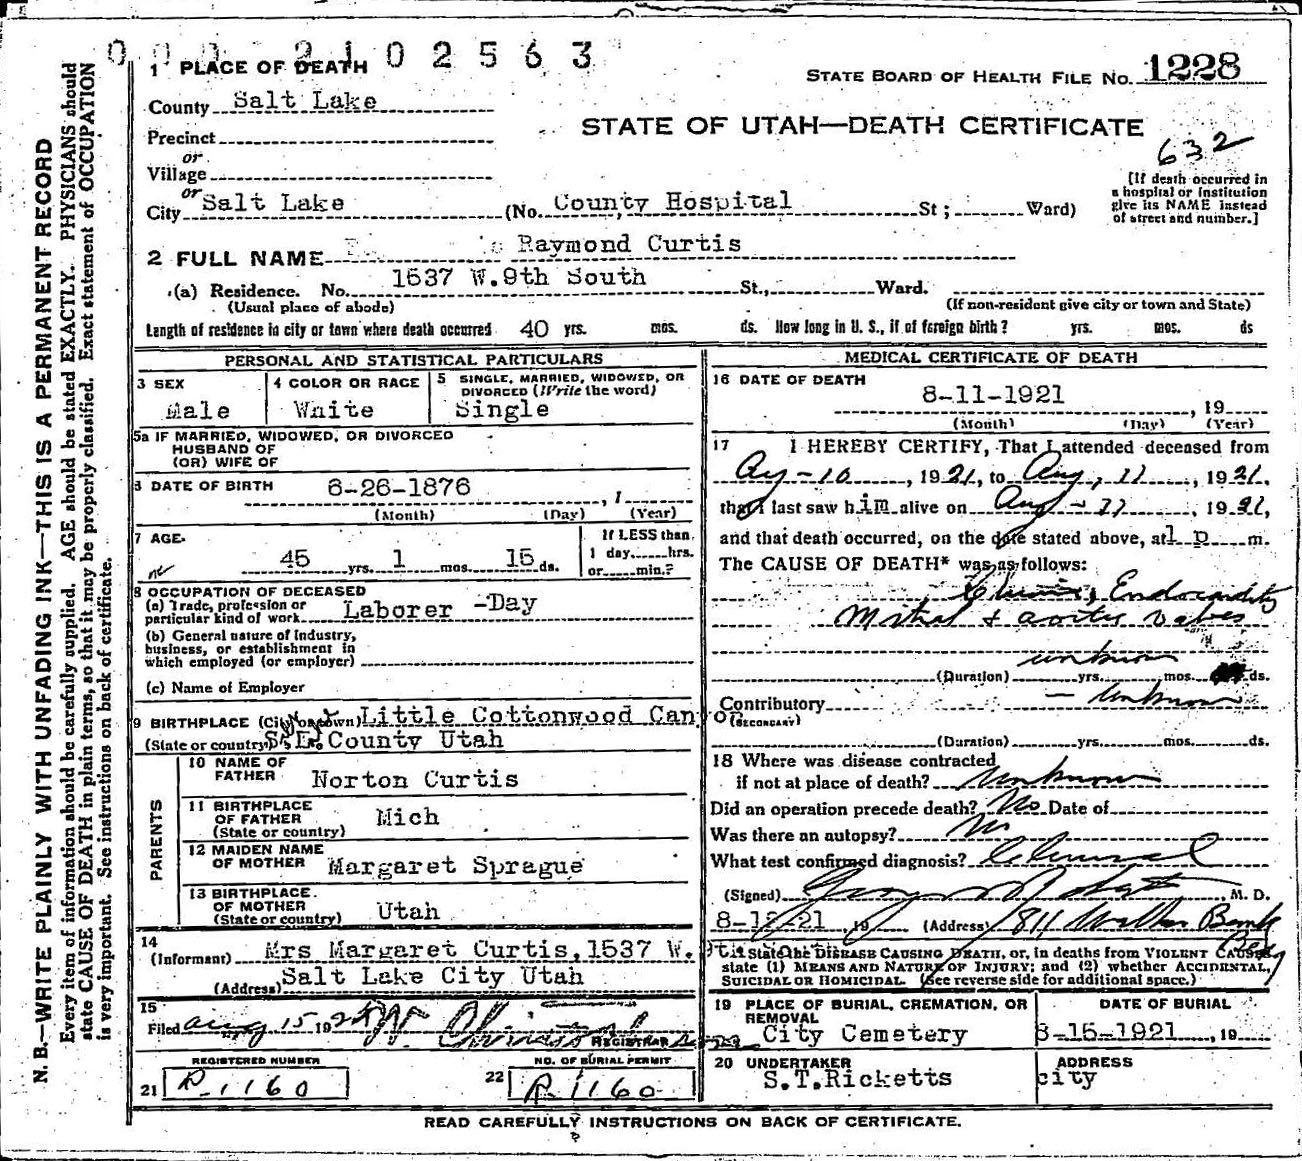 000 2102563
1 PLACE OF DEATH
STATE BOARD OF HEALTH FILE NO. 1228
County Salt Lake
STATE OF UTAH—DEATH CERTIFICATE
Precinct
632
or
Village
or
City Salt Lake (No. County Hospital St; Ward)
[If death occurred in a hospital or institution give its NAME instead of street and number.]
2 FULL NAME Raymond Curtis
(a) Residence. No. 1537 W.9th South St., Ward.
(Usual place of abode) (If non-resident give city or town and State)
Length of residence in city or town where death occurred 40 yrs. mos. ds. How long in U. S., if of foreign birth? yrs. mos. ds
PERSONAL AND STATISTICAL PARTICULARS
3 SEX Male
4 COLOR OR RACE White
5 SINGLE, MARRIED, WIDOWED, OR DIVORCED (Write the word) Single
5a IF MARRIED, WIDOWED, OR DIVORCED
HUSBAND OF
(OR) WIFE OF
6 DATE OF BIRTH 6-26-1876 , 1
(Month) (Day) (Year)
7 AGE 45 yrs. 1 mos. 15 ds.
If LESS than
1 day, hrs.
or min.?
8 OCCUPATION OF DECEASED
(a) Trade, profession or
particular kind of work Laborer -Day
(b) General nature of Industry,
business, or establishment in
which employed (or employer)
(c) Name of Employer
9 BIRTHPLACE (City or town) Little Cottonwood Canyon
(State or country) S.L. County Utah
PARENTS
10 NAME OF FATHER Norton Curtis
11 BIRTHPLACE OF FATHER (State or country) Mich
12 MAIDEN NAME OF MOTHER Margaret Sprague
13 BIRTHPLACE OF MOTHER (State or country) Utah
14
(Informant) Mrs Margaret Curtis, 1537 W. 9th
(Address) Salt Lake City Utah
15
Filed Aug 15 1921
REGISTRAR
REGISTERED NUMBER
21 R-1160
NO. OF BURIAL PERMIT
22 R-1160
MEDICAL CERTIFICATE OF DEATH
16 DATE OF DEATH
8-11-1921 , 19
(Month) (Day) (Year)
17 I HEREBY CERTIFY, That I attended deceased from
Aug-10 , 1921, to Aug, 11 , 1921,
that I last saw him alive on Aug - 11 , 1921,
and that death occurred, on the date stated above, at 1 p m.
The CAUSE OF DEATH* was as follows:
Chronic Endocarditis
Mitral & aortic valves
unknown
(Duration) yrs. mos. ds.
Contributory - unknown
(SECONDARY)
(Duration) yrs. mos. ds.
18 Where was disease contracted
if not at place of death? unknown
Did an operation precede death? No Date of
Was there an autopsy? No
What test confirmed diagnosis? Clinical
(Signed) M. D.
8-12-21 19 (Address) 811 Walker Bank
*State the DISEASE CAUSING DEATH, or, in deaths from VIOLENT CAUSES,
state (1) MEANS AND NATURE OF INJURY; and (2) whether ACCIDENTAL,
SUICIDAL OR HOMICIDAL. (See reverse side for additional space.)
19 PLACE OF BURIAL, CREMATION, OR REMOVAL
City Cemetery
DATE OF BURIAL
8-15-1921 , 19
20 UNDERTAKER
S.T.Ricketts
ADDRESS
city
READ CAREFULLY INSTRUCTIONS ON BACK OF CERTIFICATE.
N. B.—WRITE PLAINLY WITH UNFADING INK—THIS IS A PERMANENT RECORD
Every item of information should be carefully supplied. AGE should be stated EXACTLY. PHYSICIANS should
state CAUSE OF DEATH in plain terms, so that it may be properly classified. Exact statement of OCCUPATION
is very important. See instructions on back of certificate.